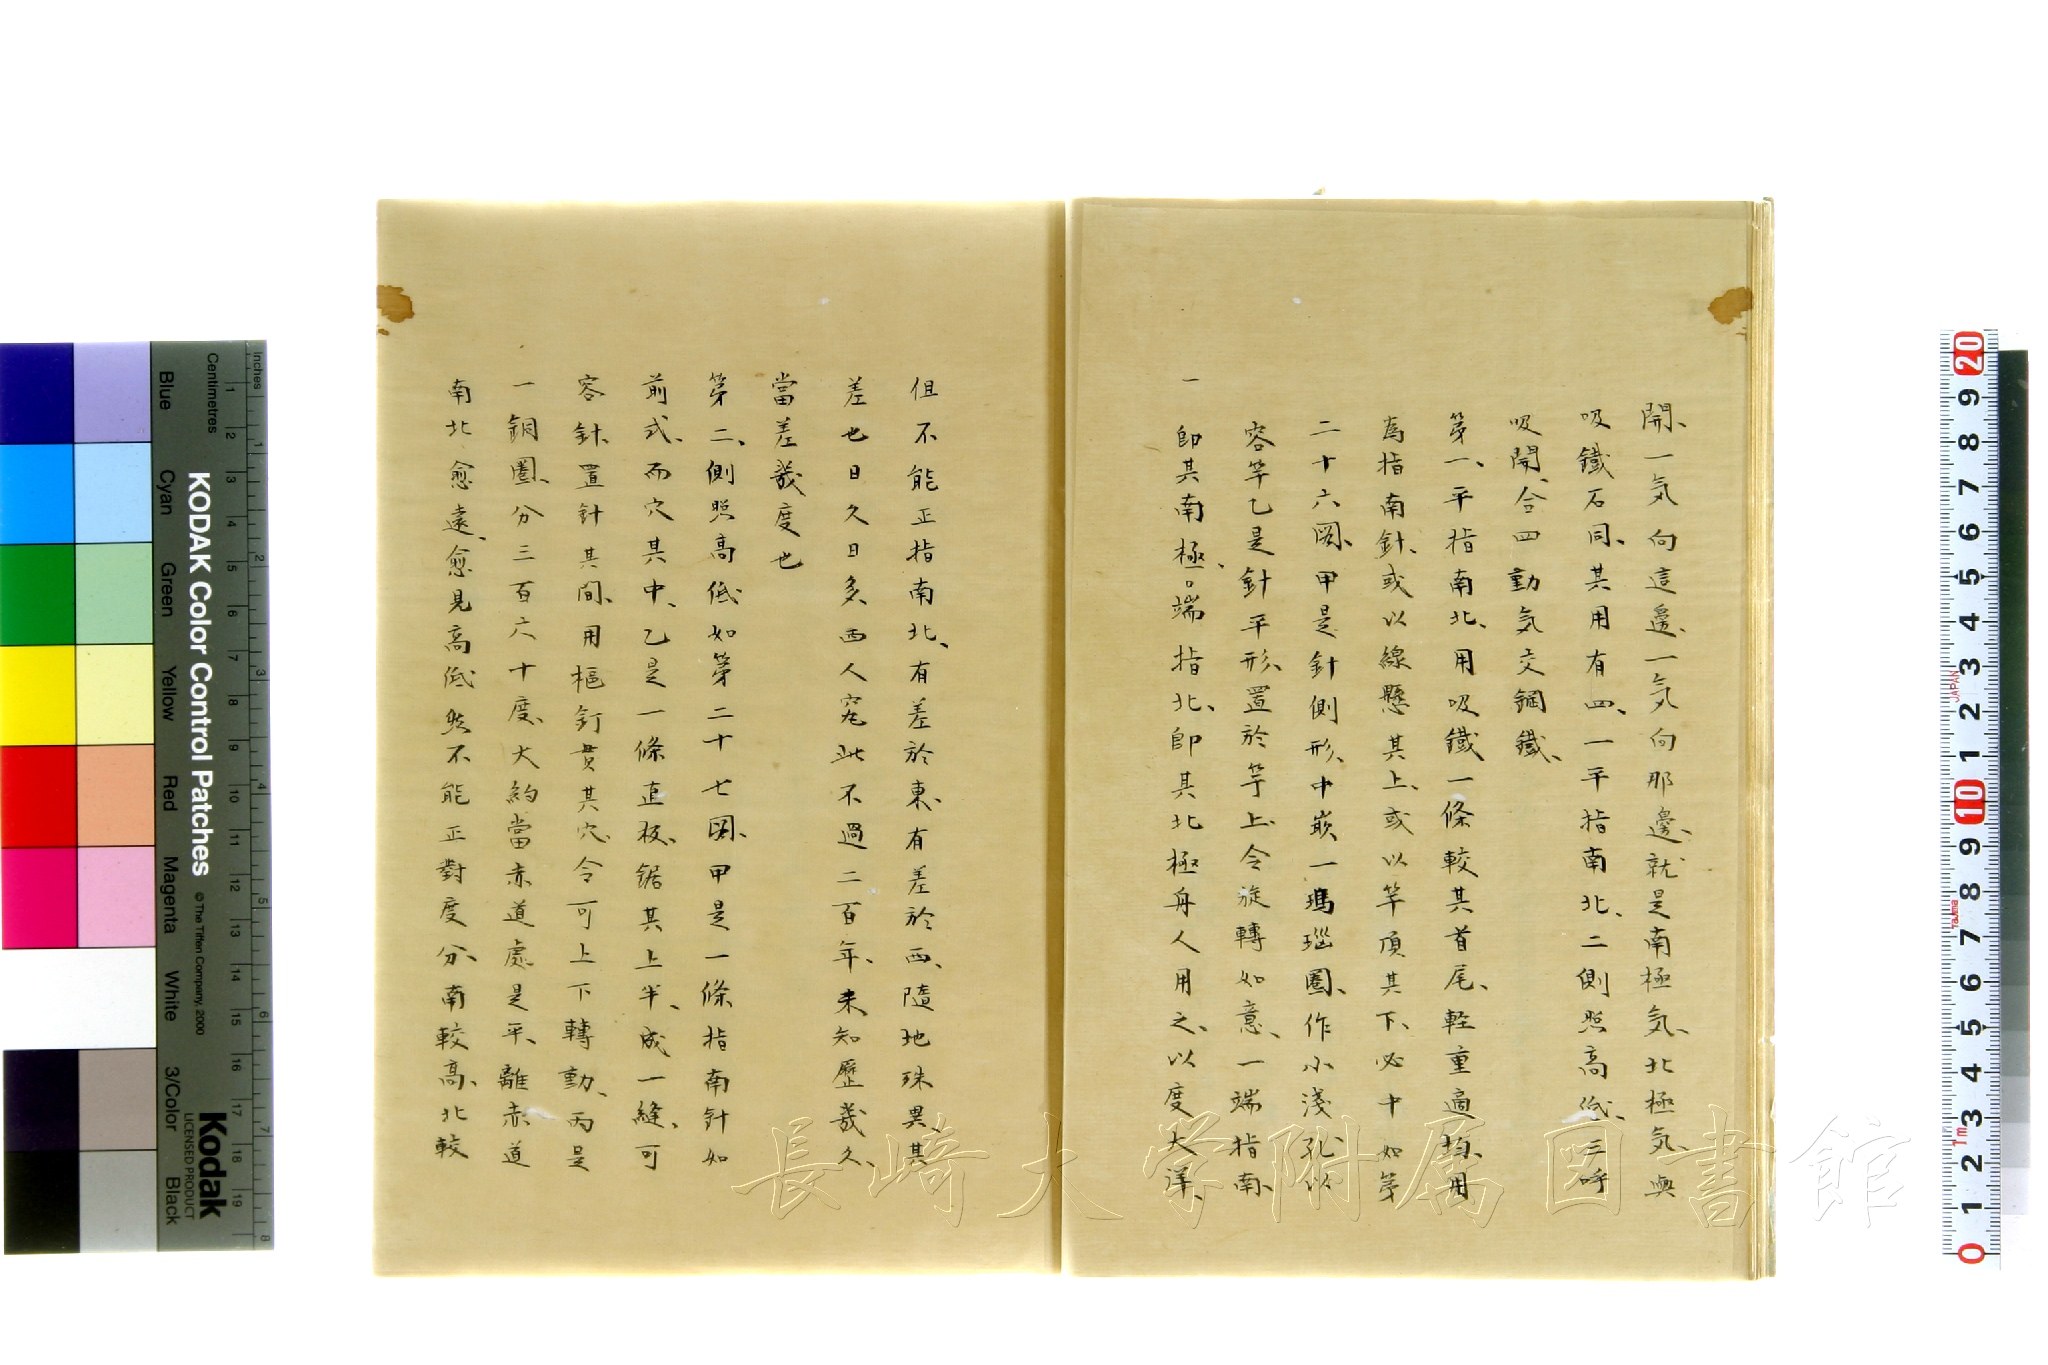 開、一気向這邊、一気向那邊、就是南極気、北極気、與
吸鐵石同、其用有四、一平指南北、二側照高低、三呼
吸開、合四動気交鋼鐵、
第一、平指南北、用吸鐵一條較其首尾、軽重適均、用
為指南針、或以線懸其上、或以竿頂其下、必中如第
二十六図、甲是針側形、中嵌一瑪瑙圏、作小淺孔以
容竿乙是針平形、置於竿上、令旋轉如意、一端指南、
一 即其南極、端指北、即其北極舟人用之、以度大洋、
但不能正指南北、有差於東、有差於西、隨地珠異、其
差也日久日多、西人究此不過二百年、未知歷幾久、
當差幾度也
第二、側照高低、如第二十七図、甲是一條指南針如
前式、而穴其中、乙是一條直板、鋸其上半、成一縫、可
容針、置針其間、用樞釘貫其穴、令可上下轉動、丙是
一銅圏、分三百六十度、大約當赤道處是平、離赤道
南北愈遠、愈見高低、然不能正對度分、南較高、北較
KODAK Color Control Patches
© The Tiffen Company, 2000
Kodak
LICENSED PRODUCT
Inches
Centimetres
Blue
Cyan
Green
Yellow
Red
Magenta
White
3/Color
Black
長崎大学附属図書館
JAPAN
Tajima
1m